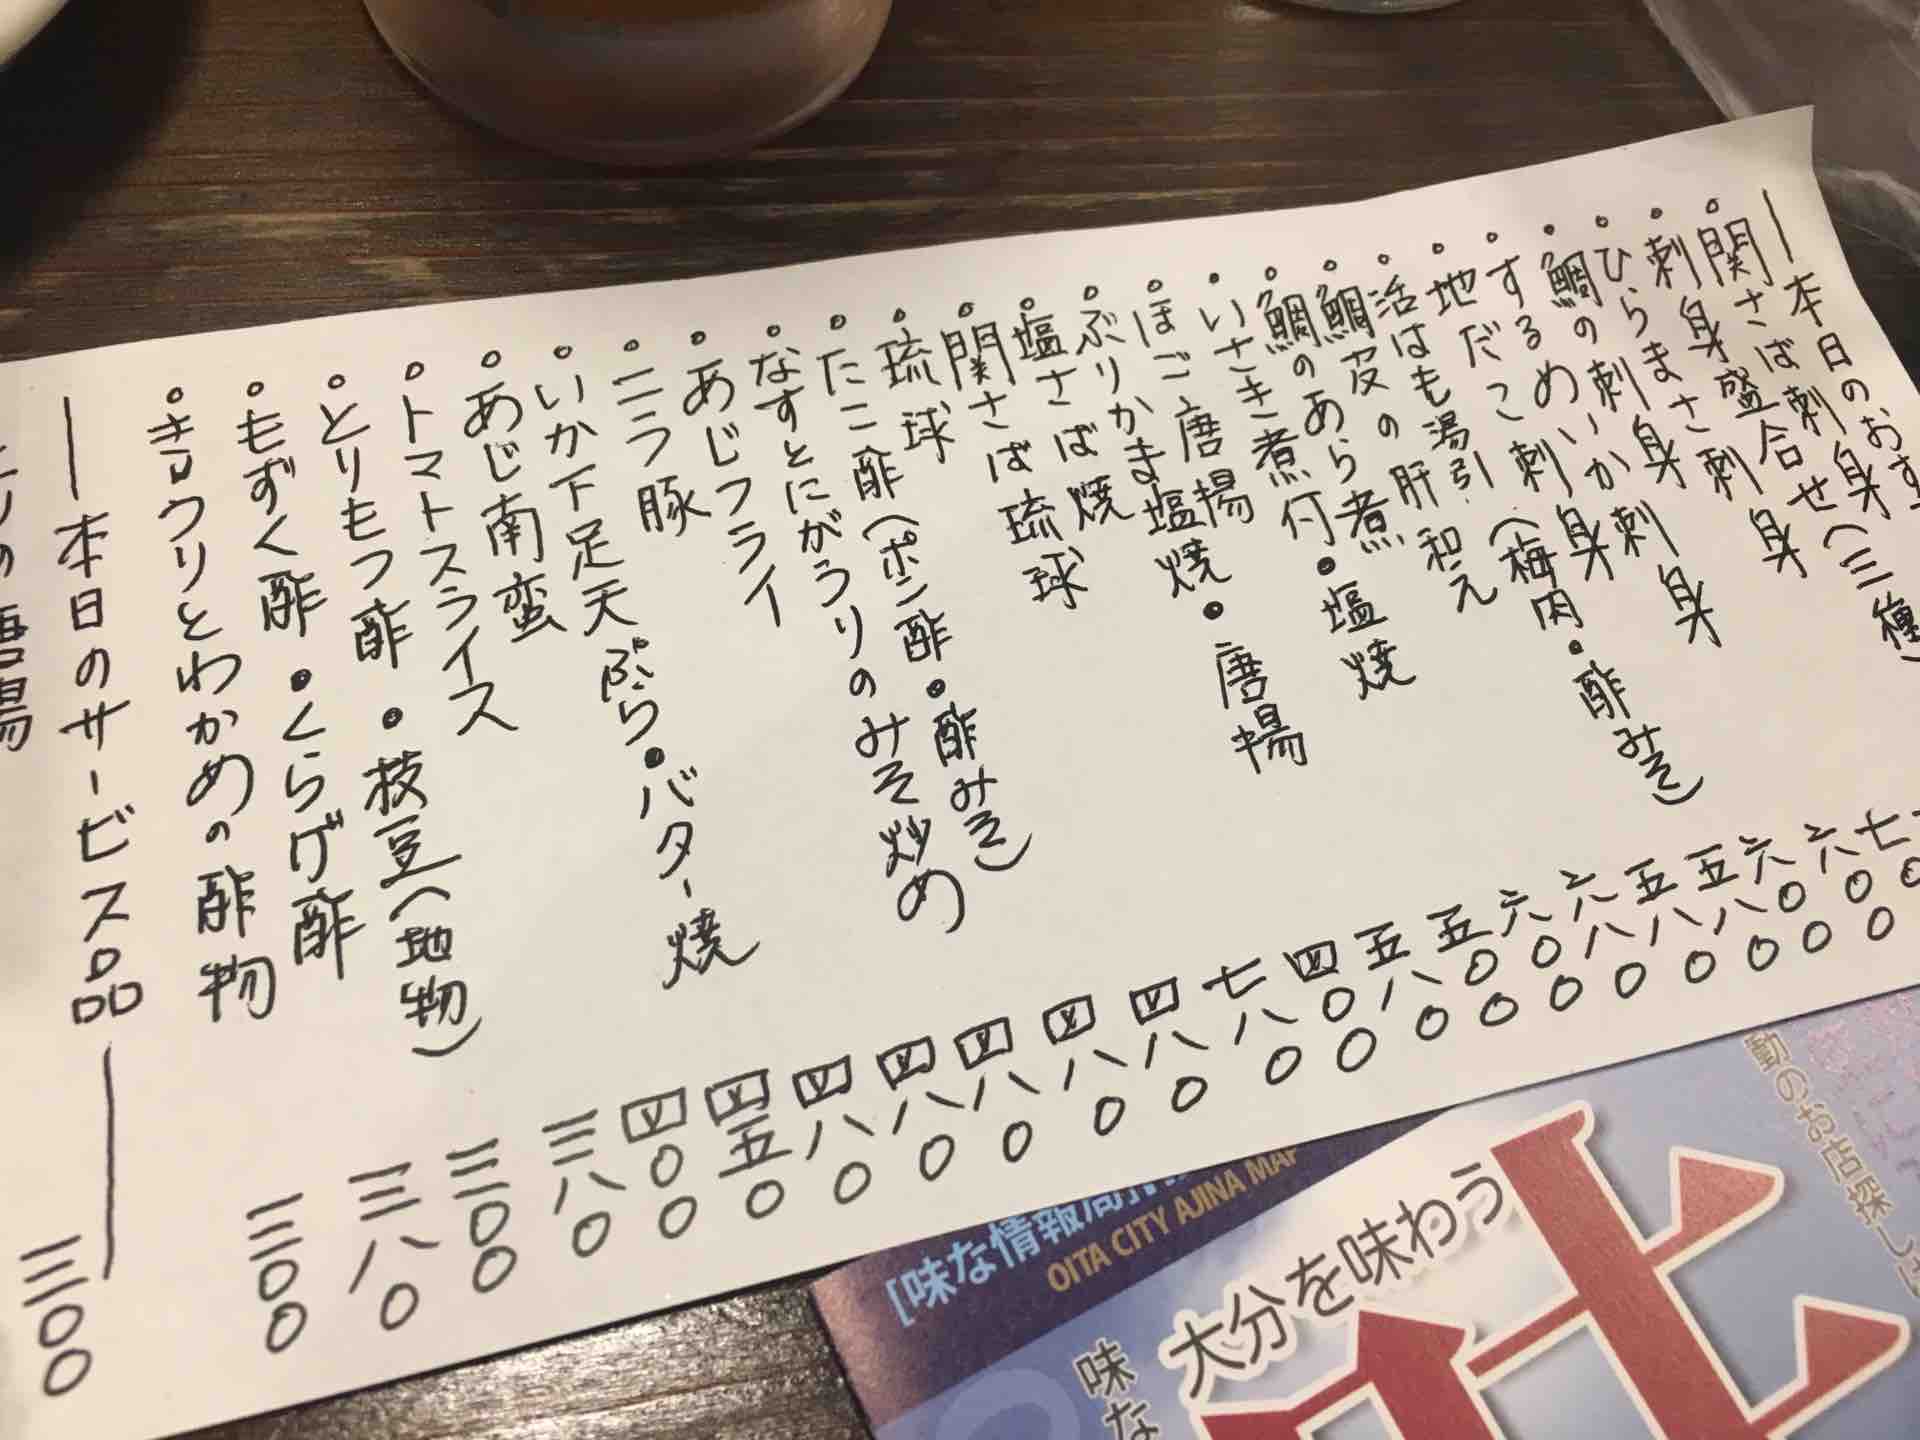 一本日のおす
関さば刺身
刺身盛合せ(三種)
ひらまさ刺身
鯛の刺身 七〇
するめいか刺身 六〇〇
地だこ刺身 六〇〇
活はも湯引(梅肉・酢みそ) 五八〇
鯛皮の肝和え 五八〇
鯛のあら煮 六八〇
いさき煮付・塩焼 六〇〇
ほご唐揚 五〇〇
ぶりかま塩焼・唐揚 五八〇
塩さば焼 四〇〇
関さば琉球 七八〇
琉球 四八〇
たこ酢(ポン酢・酢みそ) 四八〇
なすとにがうりのみそ炒め 四八〇
あじフライ 四八〇
ニラ豚 四八〇
いか下足天ぷら・バター焼 四五〇
あじ南蛮 四〇〇
トマトスライス 三八〇
とりもつ酢・枝豆(地物) 三〇〇
もずく酢・くらげ酢 三八〇
キュウリとわかめの酢物 三〇〇
本日のサービス品
とりの唐揚 三〇〇
[味な情報局
OITA CITY AJINA MAP
大分を味わう
味な